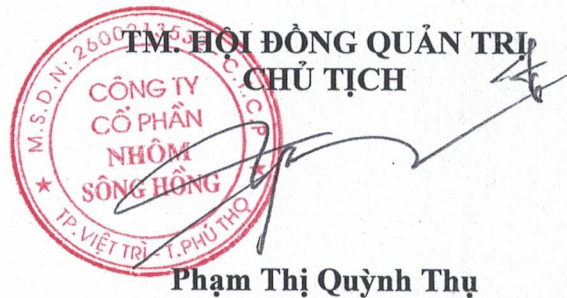 TM. HỘI ĐỒNG QUẢN TRỊ
CHỦ TỊCH
CÔNG TY
CỔ PHẦN
NHÔM
SÔNG HỒNG
TP. VIỆT TRÌ - T. PHÚ THỌ
Phạm Thị Quỳnh Thụ